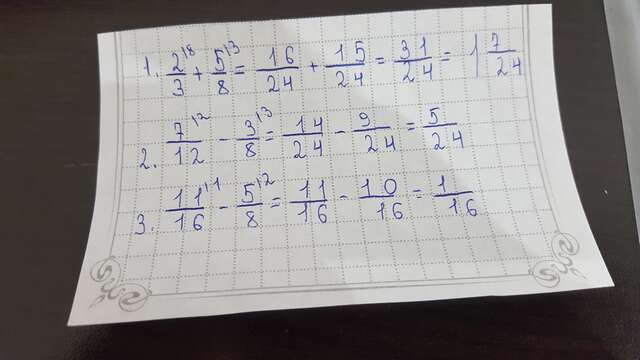 1. 2^\8/3 + 5^\3/8 = 16/24 + 15/24 = 31/24 = 1 7/24
2. 7^\2/12 - 3^\3/8 = 14/24 - 9/24 = 5/24
3. 11^\1/16 - 5^\2/8 = 11/16 - 10/16 = 1/16